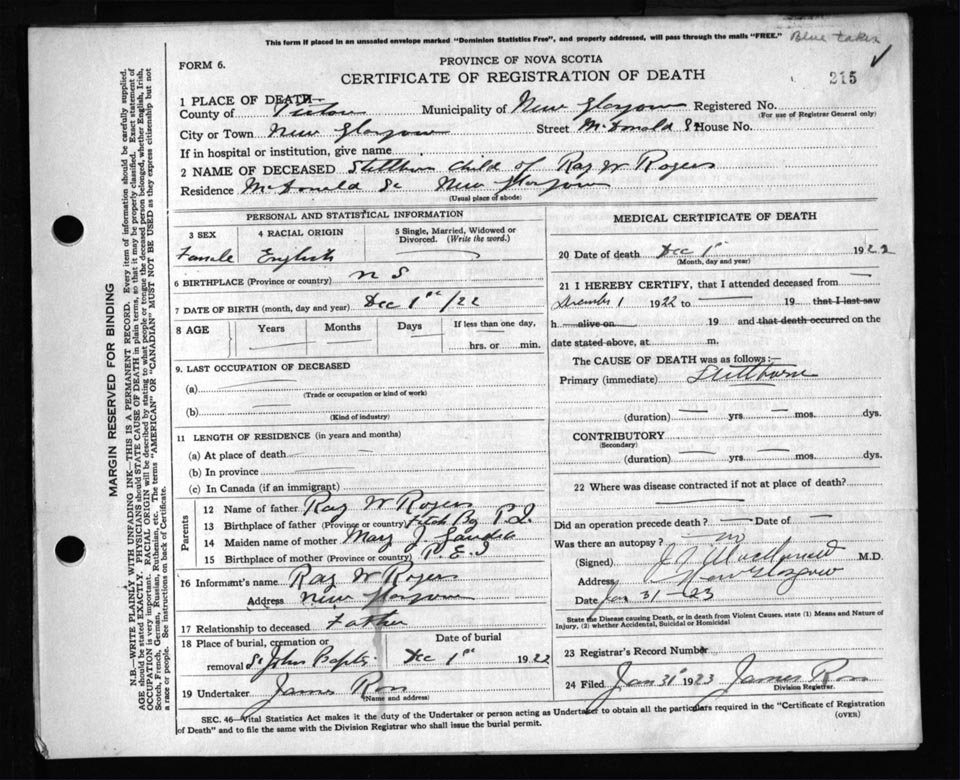 This form if placed in an unsealed envelope marked "Dominion Statistics Free", and properly addressed, will pass through the mails "FREE."
Blue
FORM 6.
PROVINCE OF NOVA SCOTIA
CERTIFICATE OF REGISTRATION OF DEATH
215
1 PLACE OF DEATH—
County of Pictou Municipality of New Glasgow Registered No.
(For use of Registrar General only)
City or Town New Glasgow Street McDonald St House No.
If in hospital or institution, give name
2 NAME OF DECEASED Stillborn Child of Ray W Rogers
Residence McDonald St New Glasgow
(Usual place of abode)
PERSONAL AND STATISTICAL INFORMATION
3 SEX 4 RACIAL ORIGIN 5 Single, Married, Widowed or Divorced. (Write the word.)
Female English
6 BIRTHPLACE (Province or country) N S
7 DATE OF BIRTH (month, day and year) Dec 1st /22
8 AGE Years Months Days If less than one day,
hrs. or min.
9. LAST OCCUPATION OF DECEASED
(a)
(Trade or occupation or kind of work)
(b)
(Kind of industry)
11 LENGTH OF RESIDENCE (in years and months)
(a) At place of death
(b) In province
(c) In Canada (if an immigrant)
Parents
12 Name of father Ray W Rogers
13 Birthplace of father (Province or country) P. I.
14 Maiden name of mother Mary J.
15 Birthplace of mother (Province or country) P. E. I
16 Informant's name Ray W Rogers
Address New Glasgow
17 Relationship to deceased Father
18 Place of burial, cremation or removal St John Baptis Date of burial Dec 1st 1922
19 Undertaker James Ross
(Name and address)
MEDICAL CERTIFICATE OF DEATH
20 Date of death Dec 1st 1922
(Month, day and year)
21 I HEREBY CERTIFY, that I attended deceased from
December 1 1922 to 19 that I last saw
h alive on 19 and that death occurred on the
date stated above, at m.
The CAUSE OF DEATH was as follows:—
Primary (immediate) Stillborn
(duration) yrs. mos. dys.
CONTRIBUTORY
(Secondary)
(duration) yrs. mos. dys.
22 Where was disease contracted if not at place of death?
Did an operation precede death? Date of
Was there an autopsy? no
(Signed) MacDonald M.D.
Address New Glasgow
Date Jan 31-23
State the Disease causing Death, or in death from Violent Causes, state (1) Means and Nature of
Injury, (2) whether Accidental, Suicidal or Homicidal
23 Registrar's Record Number
24 Filed Jan 31 1923 James Ross
Division Registrar.
SEC. 46—Vital Statistics Act makes it the duty of the Undertaker or person acting as Undertaker to obtain all the particulars required in the "Certificate of Registration
of Death" and to file the same with the Division Registrar who shall issue the burial permit.
(OVER)
MARGIN RESERVED FOR BINDING
N.B.—WRITE PLAINLY WITH UNFADING INK—THIS IS A PERMANENT RECORD. Every item of information should be carefully supplied.
AGE should be stated EXACTLY. PHYSICIANS should STATE CAUSE OF DEATH in plain terms, so that it may be properly classified. Exact statement of
OCCUPATION is very important. RACIAL ORIGIN will be described by stating to what people or tongue the deceased person belonged, whether English, Irish,
Scotch, French, German, Russian, Ruthenian, etc. The terms "AMERICAN" OR "CANADIAN" MUST NOT BE USED as they express citizenship but not
a race or people. See instructions on back of Certificate.